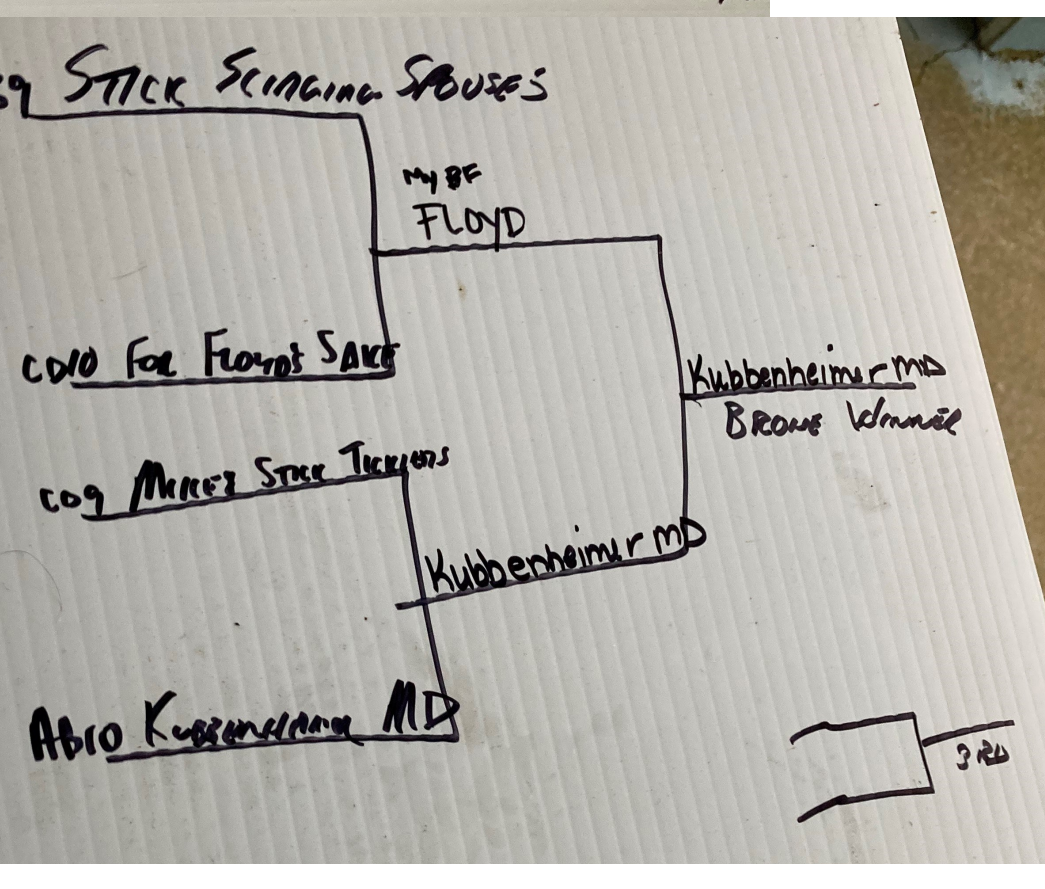 STICK SLINGING SPOUSES
My BF
FLOYD
CD10 FOR FLOYD'S SAKE
Kubbenheimer MD
BRONZE WINNER
CO9 MIKE'S STICK TICKLERS
Kubbenheimer MD
AB10 KUBBENHEIMER MD
3RD